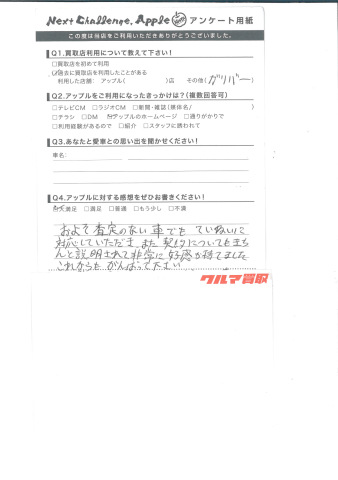 Next Challenge. Apple アンケート用紙
この度は当店をご利用いただきありがとうございました。
Q1.買取店利用について教えて下さい!
□買取店を初めて利用
☑過去に買取店を利用したことがある
利用した店舗: アップル( )店 その他( ガリバー )
Q2.アップルをご利用になったきっかけは?(複数回答可)
□テレビCM □ラジオCM □新聞・雑誌(媒体名/ )
□チラシ □DM ☑アップルのホームページ □通りがかりで
□利用経験があるので □紹介 □スタッフに誘われて
Q3.あなたと愛車との思い出を聞かせください!
車名:
Q4.アップルに対する感想をぜひお書きください!
☑大満足 □満足 □普通 □もう少し □不満
およそ査定のない車でも ていねいに
対応していただき、また 契約についてもきち
んと説明されて非常に 好感が持てました
これからも がんばって下さい
クルマ買取